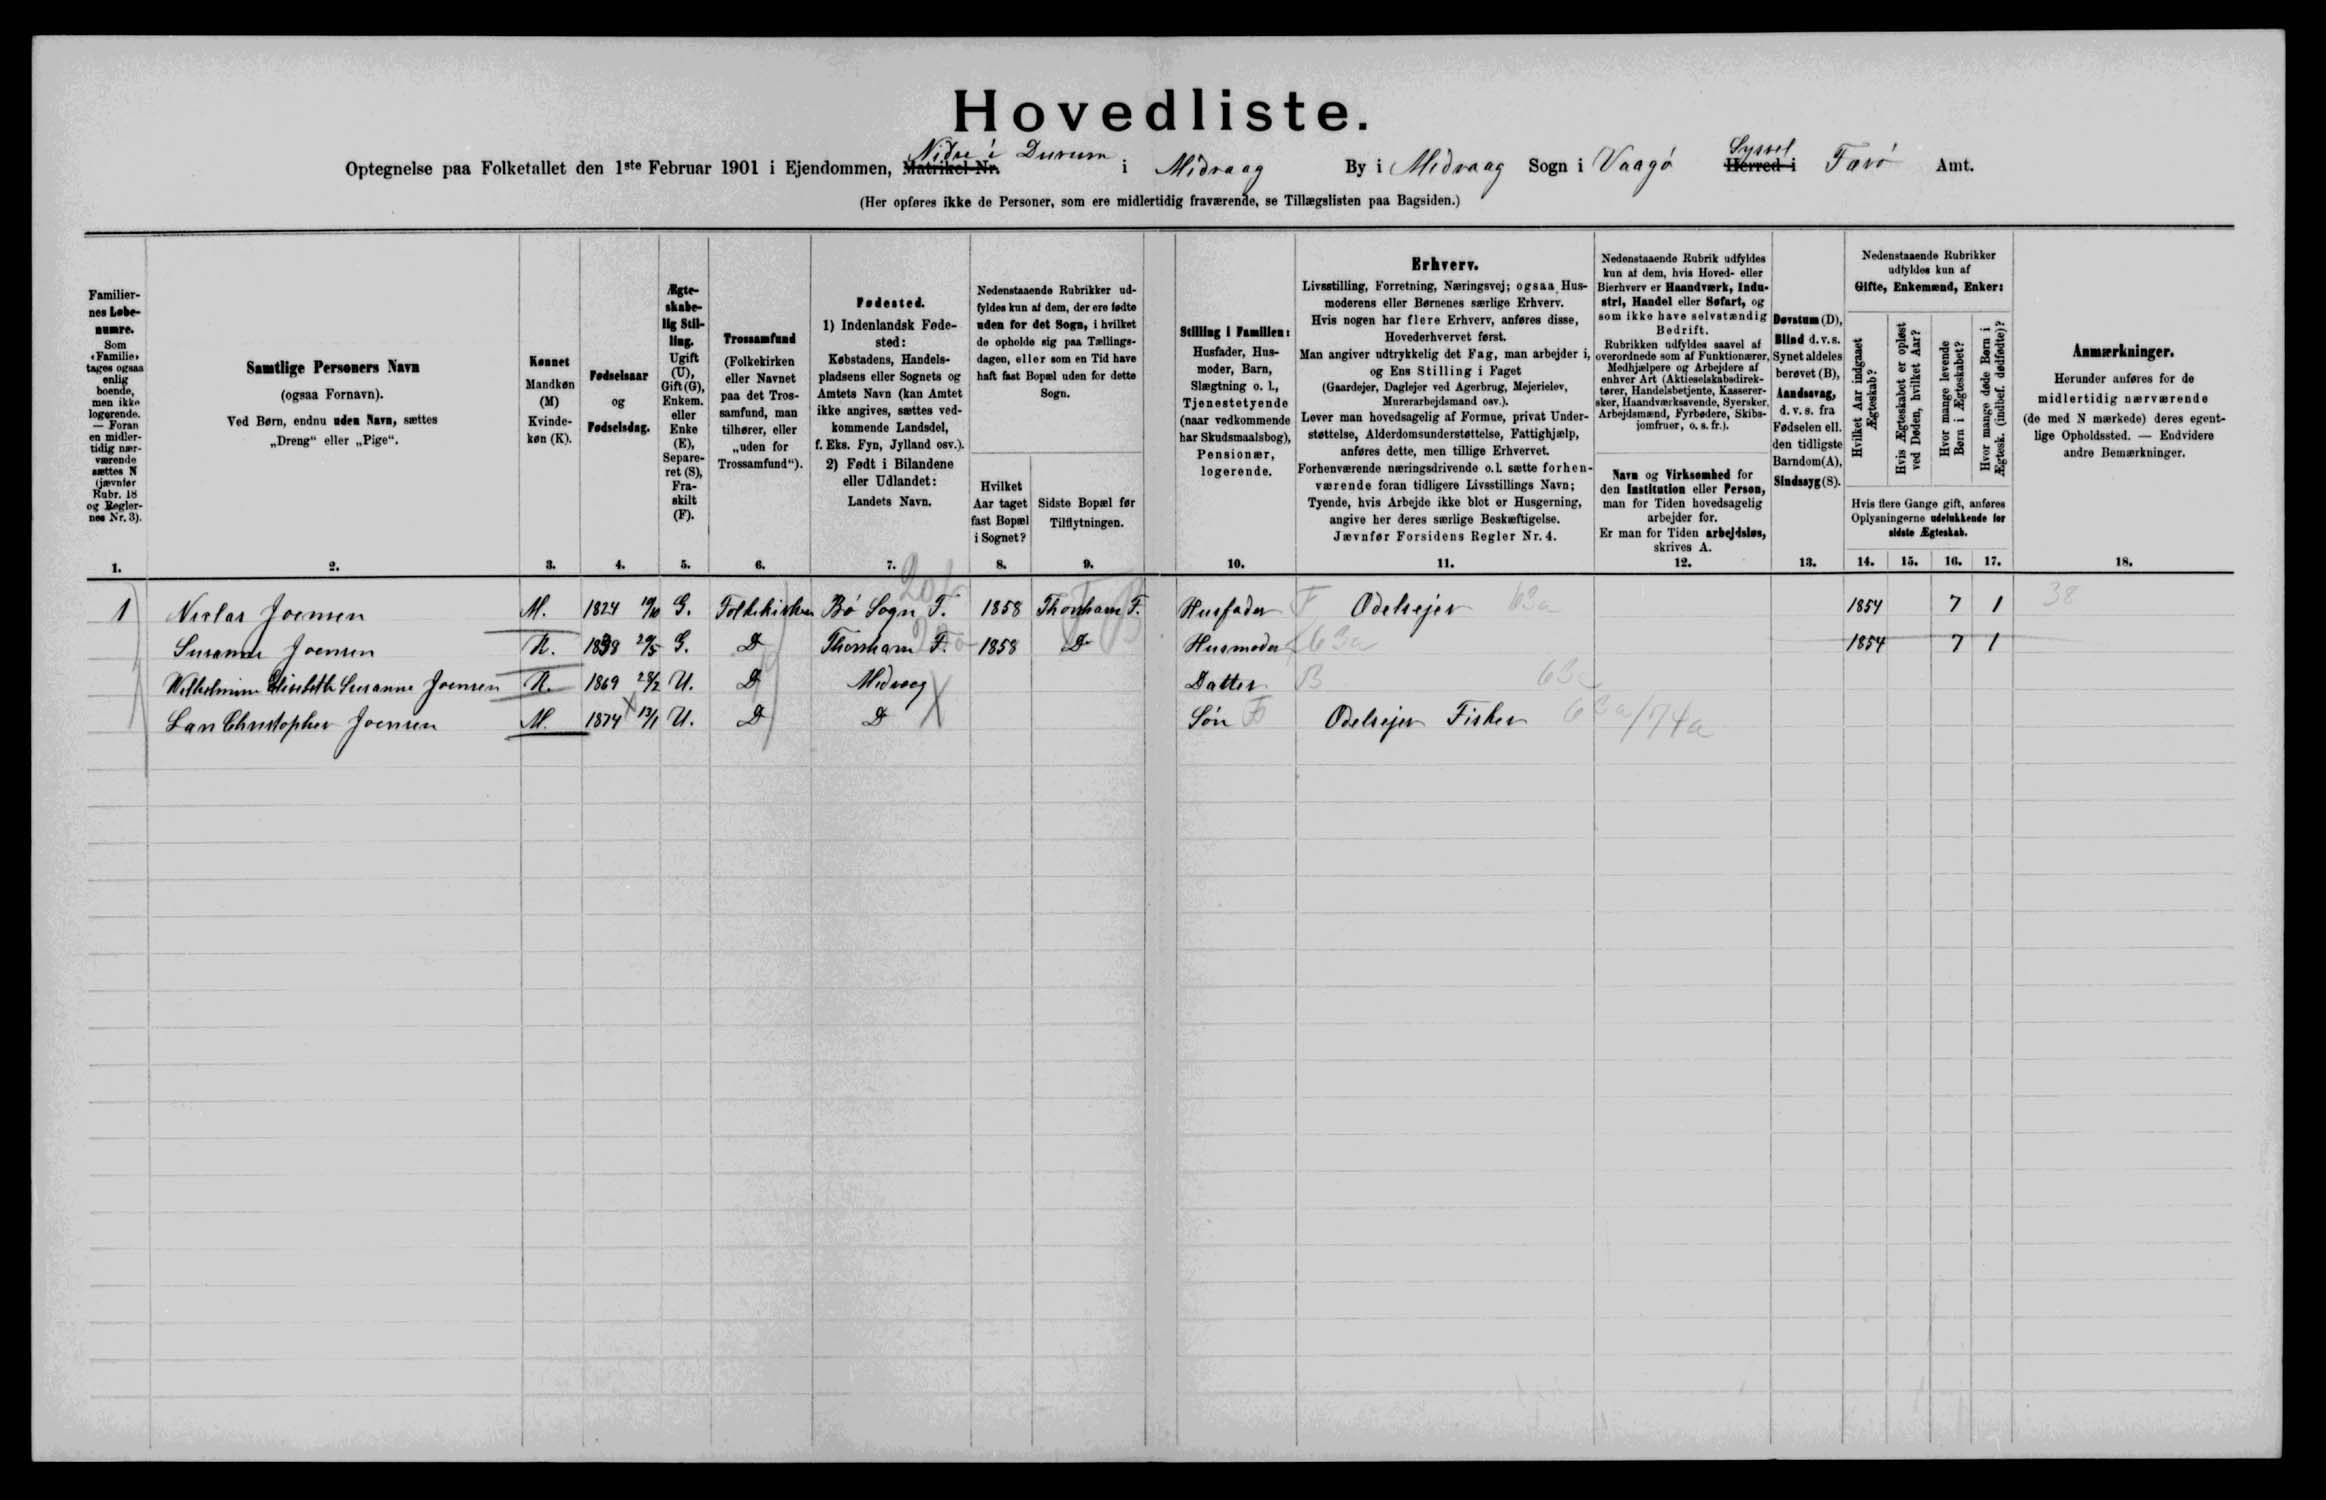 Hovedliste.
Optegnelse paa Folketallet den 1ste Februar 1901 i Ejendommen, Matrikel Nr. Nidre i Durum i Midvaag By i Midvaag Sogn i Vaagø Herred i Syssel Færø Amt.
(Her opføres ikke de Personer, som ere midlertidig fraværende, se Tillægslisten paa Bagsiden.)
Familiernes Løbenumre.
Som «Familie» tages ogsaa enlig boende, men ikke logerende. — Foran en midlertidig nærværende sættes N (jævnfør Rubr. 18 og Reglernes Nr. 3).
Samtlige Personers Navn
(ogsaa Fornavn).
Ved Børn, endnu uden Navn, sættes
„Dreng“ eller „Pige“.
Kønnet
Mandkøn (M)
Kvindekøn (K).
Fødselsaar
og
Fødselsdag.
Ægteskabelig Stilling.
Ugift (U), Gift (G), Enkem. eller Enke (E), Separeret (S), Fraskilt (F).
Trossamfund
(Folkekirken eller Navnet paa det Trossamfund, man tilhører, eller „uden for Trossamfund“).
Fødested.
1) Indenlandsk Fødested:
Købstadens, Handelspladsens eller Sognets og Amtets Navn (kan Amtet ikke angives, sættes vedkommende Landsdel, f. Eks. Fyn, Jylland osv.).
2) Født i Bilandene eller Udlandet:
Landets Navn.
Nedenstaaende Rubrikker udfyldes kun af dem, der ere fødte uden for det Sogn, i hvilket de opholde sig paa Tællingsdagen, eller som en Tid have haft fast Bopæl uden for dette Sogn.
Hvilket Aar taget fast Bopæl i Sognet?
Sidste Bopæl før Tilflytningen.
Stilling i Familien:
Husfader, Husmoder, Barn, Slægtning o. l., Tjenestetyende (naar vedkommende har Skudsmaalsbog), Pensionær, logerende.
Erhverv.
Livsstilling, Forretning, Næringsvej; ogsaa Husmoderens eller Børnenes særlige Erhverv.
Hvis nogen har flere Erhverv, anføres disse, Hovederhvervet først.
Man angiver udtrykkelig det Fag, man arbejder i, og Ens Stilling i Faget
(Gaardejer, Daglejer ved Agerbrug, Mejerielev, Murerarbejdsmand osv.).
Lever man hovedsagelig af Formue, privat Understøttelse, Alderdomsunderstøttelse, Fattighjælp, anføres dette, men tillige Erhvervet.
Forhenværende næringsdrivende o.l. sætte forhenværende foran tidligere Livsstillings Navn;
Tyende, hvis Arbejde ikke blot er Husgerning, angive her deres særlige Beskæftigelse.
Jævnfør Forsidens Regler Nr. 4.
Nedenstaaende Rubrik udfyldes kun af dem, hvis Hoved- eller Bierhverv er Haandværk, Industri, Handel eller Søfart, og som ikke have selvstændig Bedrift.
Rubrikken udfyldes saavel af overordnede som af Funktionærer, Medhjælpere og Arbejdere af enhver Art (Aktieselskabsdirektører, Handelsbetjente, Kasserersker, Haandværkssvende, Syersker, Arbejdsmænd, Fyrbødere, Skibsjomfruer, o. s. fr.).
Navn og Virksomhed for den Institution eller Person, man for Tiden hovedsagelig arbejder for.
Er man for Tiden arbejdsløs, skrives A.
Døvstum (D), Blind d. v. s. Synet aldeles berøvet (B), Aandssvag, d. v. s. fra Fødselen ell. den tidligste Barndom (A), Sindssyg (S).
Nedenstaaende Rubrikker udfyldes kun af
Gifte, Enkemænd, Enker:
Hvilket Aar indgaaet Ægteskab?
Hvis Ægteskabet er opløst ved Døden, hvilket Aar?
Hvor mange levende Børn i Ægteskabet?
Hvor mange døde Børn i Ægtesk. (indbef. dødfødte)?
Hvis flere Gange gift, anføres Oplysningerne udelukkende for sidste Ægteskab.
Anmærkninger.
Herunder anføres for de midlertidig nærværende (de med N mærkede) deres egentlige Opholdssted. — Endvidere andre Bemærkninger.
1. 2. 3. 4. 5. 6. 7. 8. 9. 10. 11. 12. 13. 14. 15. 16. 17. 18.
1 Niclas Joensen M. 1824 G. Folkekirken Bø Sogn F. 1858 Thorshavn F. Husfader F Odelsejer 63a 1854 7 1 38
Susanne Joensen K. G. D Thorshavn F. 1858 D Husmoder 63a 1854 7 1
Wilhelmine Elisebeth Susanne Joensen K. 1869 28/2 U. D Midvaag Datter B
Christopher Joensen M. 1874 13/1 U. D D Søn Odelsejer Fisker 63a/74a